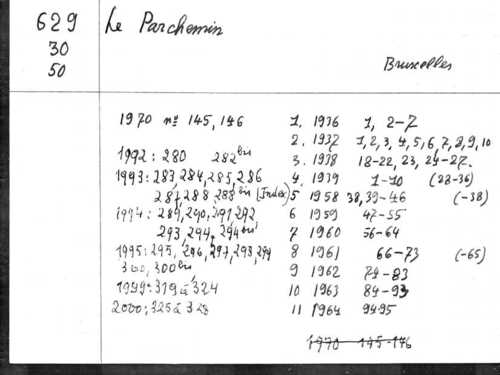 629 Le Parchemin
30
50
Bruxelles
1970 nos 145, 146
1992: 280 282bis
1993: 283, 284, 285, 286
287, 288 288bis (Index)
1994: 289, 290, 291 292
293, 294, 294bis
1995: 295, 296, 297, 298, 299
300, 300bis
1999: 319 à 324
2000: 325 à 328
1. 1936 1, 2-7
2. 1937 1, 2, 3, 4, 5, 6, 7, 8, 9, 10
3. 1938 18-22, 23, 24-27.
4. 1939 1-10 (28-36)
5 1958 38, 39-46 (-38)
6 1959 47-55
7 1960 56-64
8 1961 66-73 (-65)
9 1962 74-83
10 1963 84-93
11 1964 94-95
1970 145-146